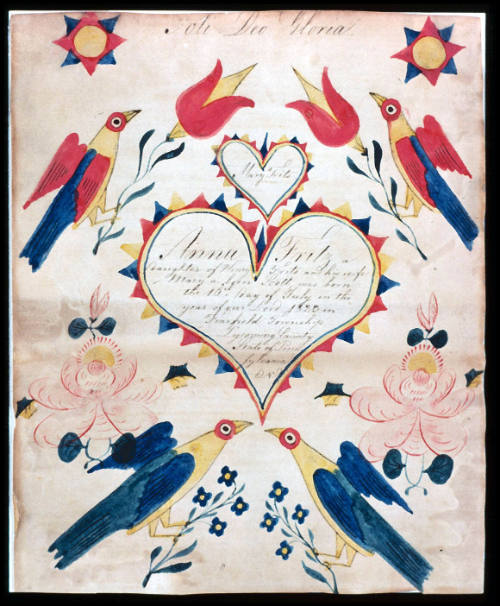 Soli Deo Gloria.
Mary Fritz
Anna Fritz a
Daughter of Henry Fritz and his wife
Mary a born was born
the 16 day of July in the
year of our Lord 1833 in
Fairfield Township
Lycoming County
State of Penn
sylvania